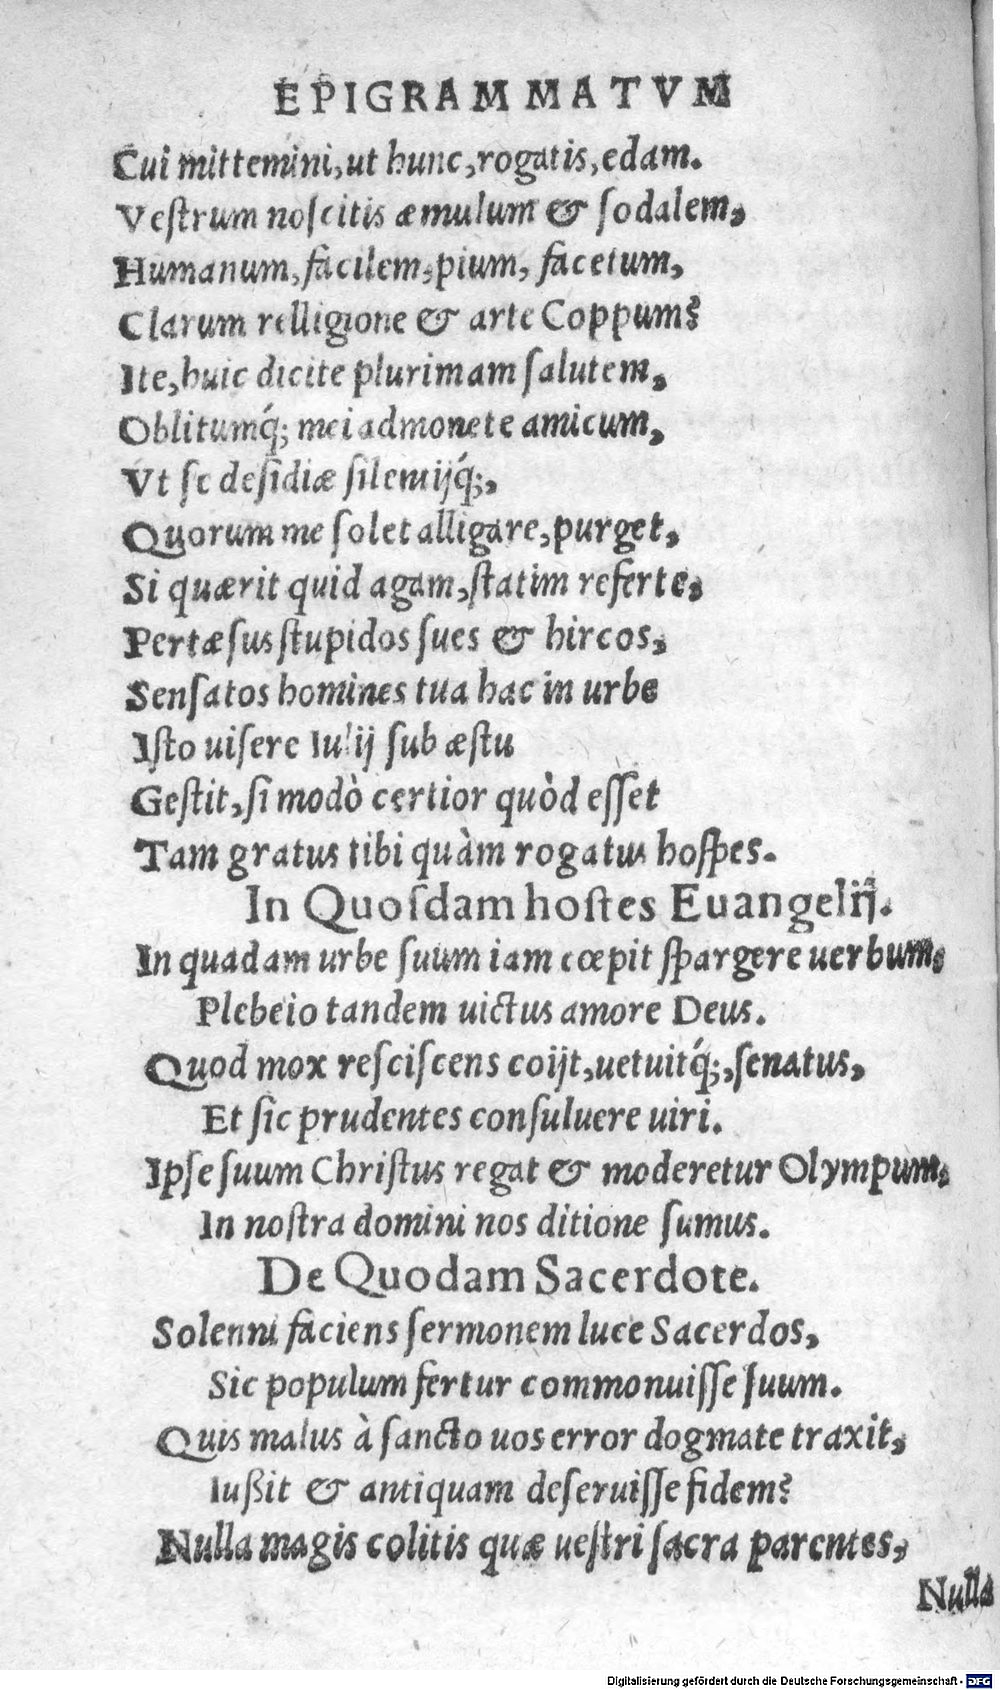 EPIGRAMMATVM
Cui mittemini, ut hunc, rogatis, edam.
Vestrum noscitis æmulum & sodalem,
Humanum, facilem, pium, facetum,
Clarum relligione & arte Coppum?
Ite, huic dicite plurimam salutem,
Oblitumq́; mei admonete amicum,
Vt se desidiæ silentijq́;,
Quorum me solet alligare, purget,
Si quærit quid agam, statim referte,
Pertæsus stupidos sues & hircos,
Sensatos homines tua hac in urbe
Isto uisere Iulij sub æstu
Gestit, si modò certior quòd esset
Tam gratus tibi quàm rogatus hospes.
In Quosdam hostes Euangelij.
In quadam urbe suum iam cœpit spargere uerbum,
Plebeio tandem uictus amore Deus.
Quod mox resciscens coijt, uetuitq́;, senatus,
Et sic prudentes consuluere uiri.
Ipse suum Christus regat & moderetur Olympum,
In nostra domini nos ditione sumus.
De Quodam Sacerdote.
Solenni faciens sermonem luce Sacerdos,
Sic populum fertur commonuisse suum.
Quis malus à sancto uos error dogmate traxit,
Iußit & antiquam deseruisse fidem?
Nulla magis colitis quæ uestri sacra parentes,
Nulla
Digitalisierung gefördert durch die Deutsche Forschungsgemeinschaft - DFG